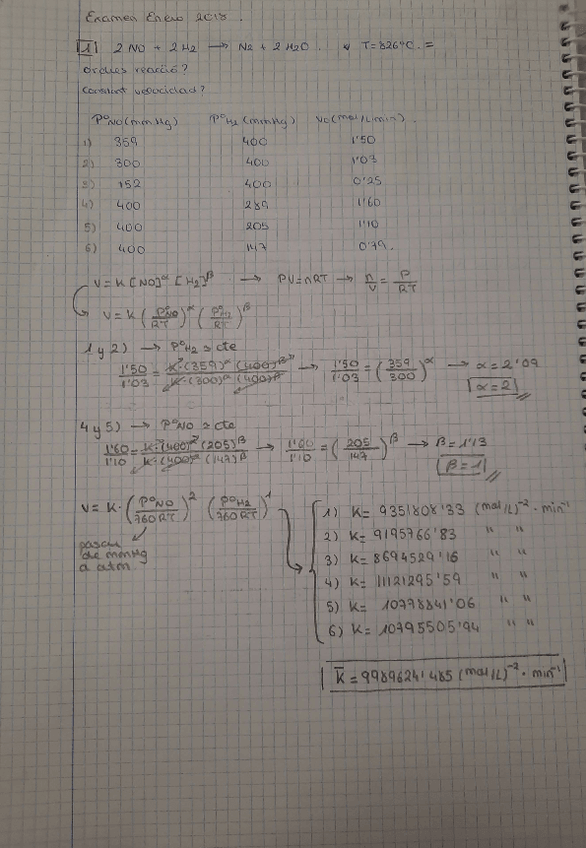 Examen Enero 2018.
1 2NO + 2H₂ → N₂ + 2H₂O. T=826°C. =
ordenes reacció?
constant velocidad?
P°NO(mmHg) P°H₂(mmHg) Vo(mol/Lmin).
1) 359 400 1'50
2) 300 400 1'03
3) 152 400 0'25
4) 400 289 1'60
5) 400 205 1'10
6) 400 147 0'79.
V=K[NO]^α [H₂]^β → PV=nRT → n/V = P/RT
V=K(P°NO/RT)^α (P°H₂/RT)^β
1 y 2) → P°H₂ = cte
1'50/1'03 = K·(359)^α (400)^β / K·(300)^α (400)^β → 1'50/1'03 = (359/300)^α → α=2'09
α=2
4 y 5) → P°NO = cte
1'60/1'10 = K·(400)² (205)^β / K·(400)² (147)^β → 1'60/1'10 = (205/147)^β → β=1'13
β=1
V=K·(P°NO/760RT)² (P°H₂/760RT)¹
pasar
de mmHg
a atm.
1) K= 9351808'33 (mol/L)⁻²·min⁻¹
2) K= 9195766'83 " "
3) K= 8694529'16 " "
4) K= 11121295'59 " "
5) K= 10778841'06 " "
6) K= 10795505'94 " "
K̄=9989624'485 (mol/L)⁻²·min⁻¹